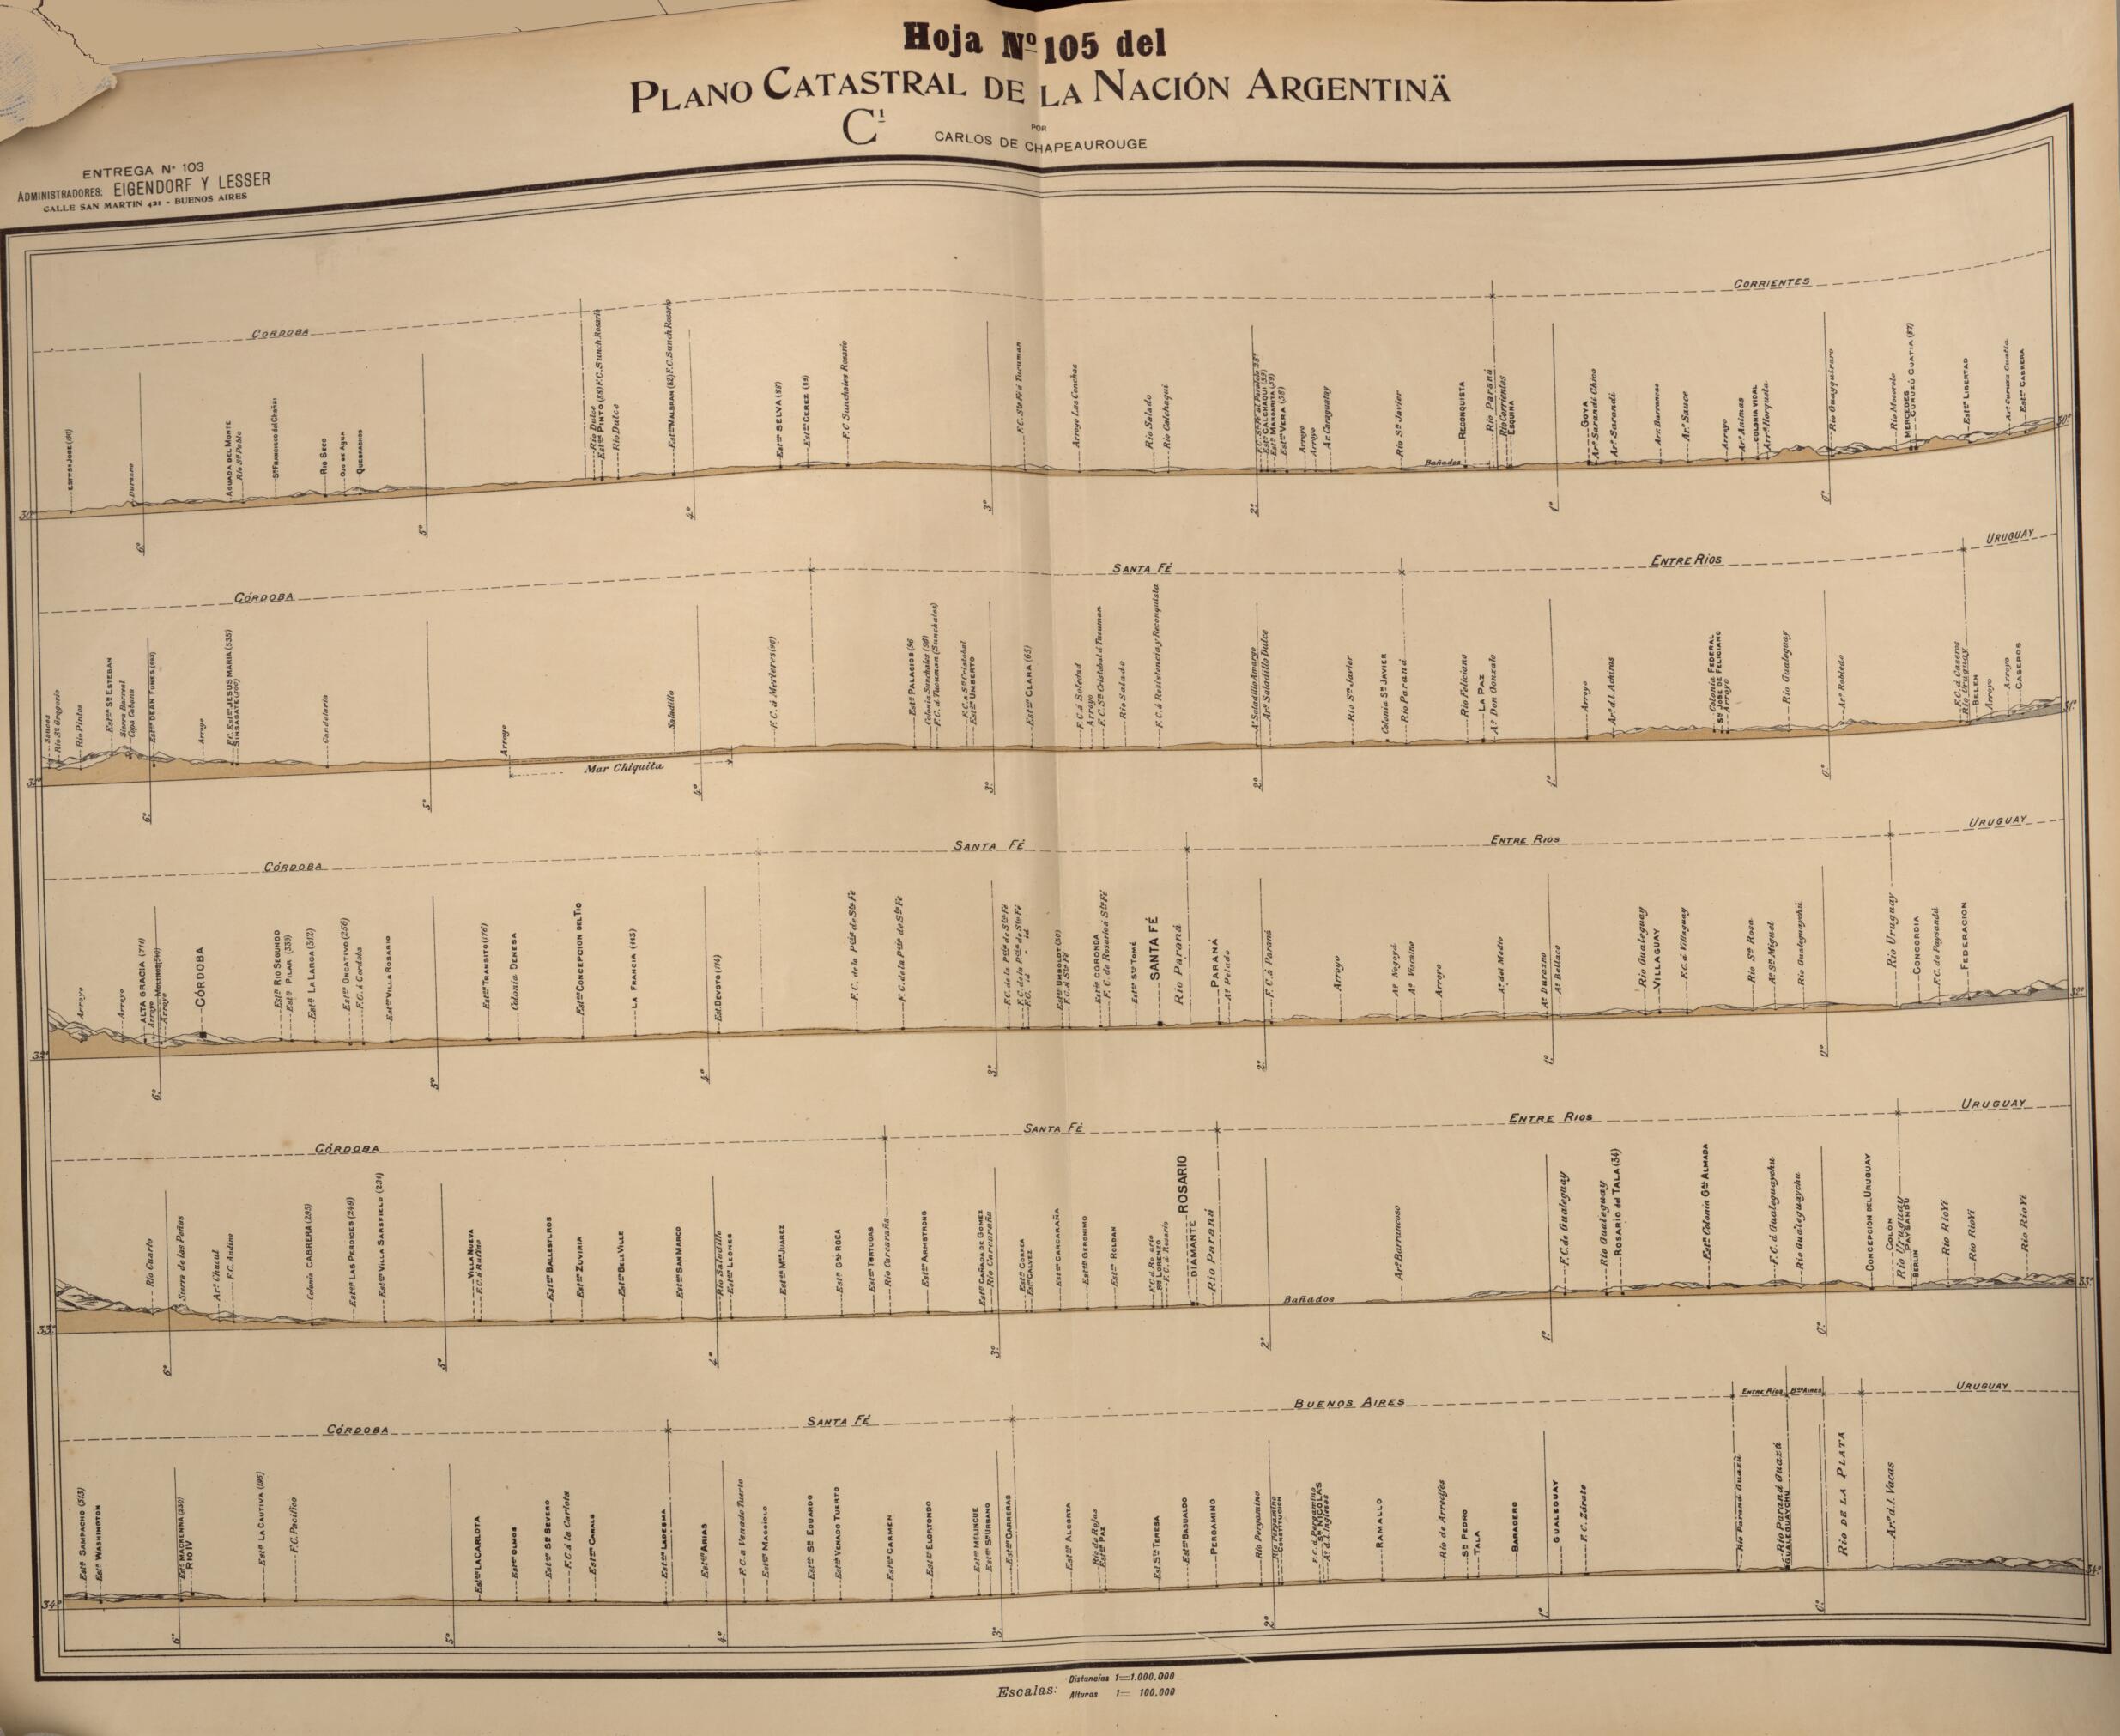 Hoja Nº 105 del
PLANO CATASTRAL DE LA NACIÓN ARGENTINÄ
C¹
POR
CARLOS DE CHAPEAUROUGE
ENTREGA Nº 103
ADMINISTRADORES: EIGENDORF Y LESSER
CALLE SAN MARTIN 421 - BUENOS AIRES
CÓRDOBA
CORRIENTES
Durazno
AGUADA DEL MONTE
Rio Sⁿ Pablo
RIO SECO
OJO DE AGUA
QUEBRACHOS
Rio Dulce
Estⁿ PINTO (88) F.C. Sunch. Rosario
Rio Dulce
Estⁿ MALBRAN (82) F.C. Sunch. Rosario
Estⁿ SELVA (88)
Estⁿ CEREZ (89)
F.C. Sunchales Rosario
F.C. Stª Fé á Tucuman
Arroyo Las Conchas
Rio Salado
Rio Calchaquí
Estⁿ CALCHAQUI (59)
Estⁿ MARGARITA (59)
Estⁿ VERA (58)
Arroyo
Arroyo
Ar. Caraguatay
Rio Sⁿ Javier
Bañados
RECONQUISTA
Rio Paraná
Rio Corrientes
ESQUINA
GOYA
Arº Sarandi Chico
Arº Sarandi
Arr. Barrancas
Arº Sauce
Arroyo
Arº Animas
COLONIA VIDAL
Rio Guayquiraro
Rio Mocoreto
MERCEDES
CURUZÚ CUATIA (87)
Estⁿ LIBERTAD
Estⁿ CABRERA
30º
6º
5º
4º
3º
2º
1º
0º
30º
CÓRDOBA
SANTA FÉ
ENTRE RIOS
URUGUAY
Sauces
Rio Sⁿ Gregorio
Rio Pintos
Estⁿ Sⁿ ESTEBAN
Sierra Barreal
Copa Cabana
Estⁿ DEAN FUNES (693)
Arroyo
F.C. Estⁿ JESUS MARIA (535)
SINSAGATE
Candelaria
Arroyo
Mar Chiquita
Saladillo
F.C. á Morteros
Estⁿ PALACIOS
Colonia Sunchales
F.C. á Tucuman (Sunchales)
F.C. a Sⁿ Cristobal
Estⁿ UMBERTO
Estⁿ CLARA (65)
F.C. á Soledad
Arroyo
F.C. Sⁿ Cristobal á Tucuman
Rio Salado
F.C. á Resistencia y Reconquista
Aº Saladillo Amargo
Arº Saladillo Dulce
Rio Sⁿ Javier
Colonia Sⁿ JAVIER
Rio Paraná
Rio Feliciano
LA PAZ
Aº Don Gonzalo
Arroyo
Arº d. Achiras
Colonia FEDERAL
Sⁿ JOSE DE FELICIANO
Arroyo
Rio Gualeguay
Arº Robledo
F.C. á Caseros
Rio Uruguay
BELEN
Arroyo
Arroyo
CASEROS
31º
6º
5º
4º
3º
2º
1º
0º
31º
CÓRDOBA
SANTA FÉ
ENTRE RIOS
URUGUAY
Arroyo
Arroyo
ALTA GRACIA (711)
Arroyo
Arroyo
CÓRDOBA
Estⁿ RIO SEGUNDO
Estⁿ PILAR (339)
Estⁿ LA LARGA (312)
Estⁿ ONCATIVO (256)
F.C. á Cordoba
Estⁿ VILLA ROSARIO
Estⁿ TRANSITO (176)
Colonia DENESA
Estⁿ CONCEPCION DEL TIO
LA FRANCIA (115)
Est. DEVOTO (114)
F.C. de la Pciª de Stª Fé
F.C. de la Pciª de Stª Fé
F.C. de la Pciª de Stª Fé
F.C. de la Pciª de Stª Fé
F.C. id id
Estⁿ UMBOLDT (50)
F.C. á Stª Fé
Estⁿ CORONDA
F.C. de Rosario á Stª Fé
Estⁿ Stº TOMÉ
SANTA FÉ
Rio Paraná
PARANÁ
Aº Pelado
F.C. á Paraná
Arroyo
Aº Nogoyá
Aº Vizcaino
Arroyo
Aº del Medio
Aº Durazno
Aº Bellaco
Rio Gualeguay
VILLAGUAY
F.C. á Villaguay
Rio Stª Rosa
Aº Sⁿ Miguel
Rio Gualeguaychú
Rio Uruguay
CONCORDIA
F.C. de Paysandú
FEDERACION
32º
6º
5º
4º
3º
2º
1º
0º
32º
CÓRDOBA
SANTA FÉ
ENTRE RIOS
URUGUAY
Rio Cuarto
Sierra de las Peñas
Arº Chucul
F.C. Andino
Colonia CABRERA (285)
Estⁿ LAS PERDICES (249)
Estⁿ VILLA SARSFIELD (231)
VILLA NUEVA
F.C. á Rufino
Estⁿ BALLESTEROS
Estⁿ ZUVIRIA
Estⁿ BELL VILLE
Estⁿ SAN MARCO
Rio Saladillo
Estⁿ LEONES
Estⁿ Mºˢ JUAREZ
Estⁿ Gªˡ ROCA
Estⁿ TORTUGAS
Rio Carcaraña
Estⁿ ARMSTRONG
Estⁿ CAÑADA DE GOMEZ
Rio Carcaraña
Estⁿ CORREA
Estⁿ GALVEZ
Estⁿ CARCARAÑA
Estⁿ GERONIMO
Estⁿ ROLDAN
F.C. á Rosario
Sⁿ LORENZO
F.C. á Rosario
ROSARIO
DIAMANTE
Rio Paraná
Bañados
Arº Barrancoso
F.C. de Gualeguay
Rio Gualeguay
ROSARIO del TALA (34)
Estⁿ Colonia Gªˡ ALMADA
F.C. á Gualeguaychu
Rio Gualeguaychu
CONCEPCION DEL URUGUAY
COLON
Rio Uruguay
PAYSANDÚ
BERLIN
Rio Rio Yi
Rio Rio Yi
Rio Rio Yi
33º
6º
5º
4º
3º
2º
1º
0º
33º
CÓRDOBA
SANTA FÉ
BUENOS AIRES
ENTRE RIOS
Bˢ AIRES
URUGUAY
Estⁿ SAMPACHO (513)
Estⁿ WASHINGTON
Estⁿ MACKENNA (230)
RIO IV
Estⁿ LA CAUTIVA (185)
F.C. Pacífico
Estⁿ LA CARLOTA
Estⁿ OLMOS
Estⁿ Sⁿ SEVERO
F.C. á la Carlota
Estⁿ CANALS
Estⁿ LADESMA
Estⁿ ARIAS
F.C. a Venado Tuerto
Estⁿ MAGGIOLO
Estⁿ Sⁿ EDUARDO
Estⁿ VENADO TUERTO
Estⁿ CARMEN
Estⁿ ELORTONDO
Estⁿ MELINCUE
Estⁿ Sⁿ URBANO
Estⁿ CARRERAS
Estⁿ ALCORTA
Rio de Rojas
Estⁿ PAZ
Est. Stª TERESA
Estⁿ BASUALDO
PERGAMINO
Rio Pergamino
Rio Pergamino
CONSTITUCION
F.C. á Pergamino
Sⁿ NICOLAS
Aº d. l. Ingleses
RAMALLO
Rio de Arrecifes
Sⁿ PEDRO
TALA
BARADERO
GUALEGUAY
F.C. Zárate
Rio Paraná Guazú
Rio Paraná Guazú
GUALEGUAYCHU
RIO DE LA PLATA
Arº d. l. Vacas
34º
6º
5º
4º
3º
2º
1º
0º
34º
Escalas: Distancias 1=1.000.000
Alturas 1= 100.000